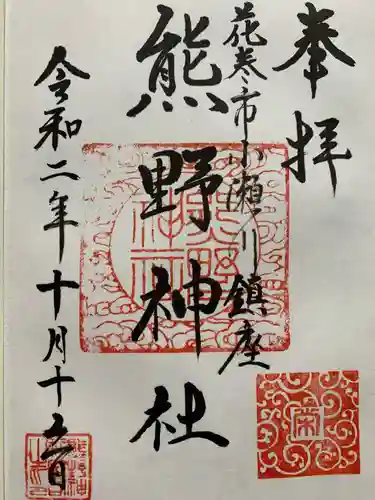 奉拝
花巻市小瀬川鎮座
熊野神社
令和二年十月十五日